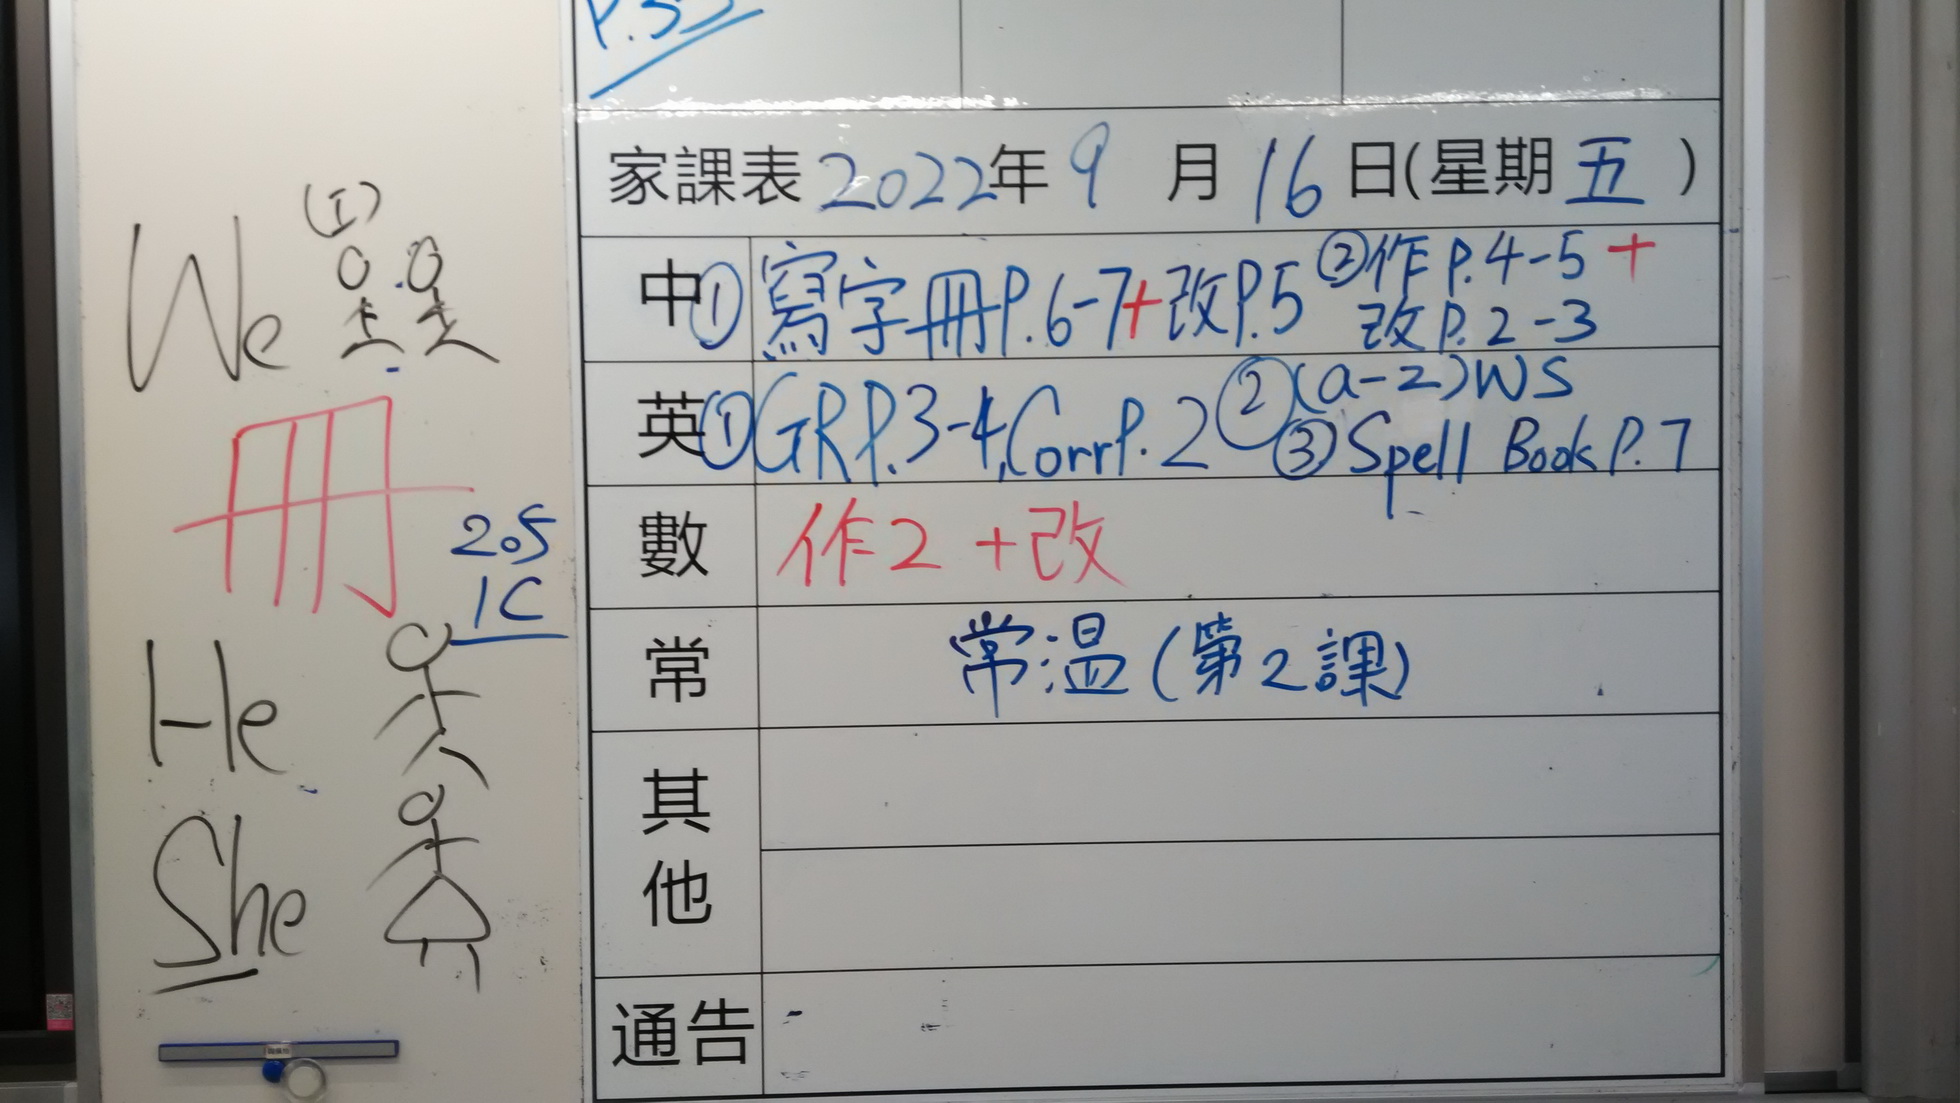 P.33
家課表 2022年 9 月 16 日(星期 五 )
中 ① 寫字冊P.6-7+改P.5 ②作P.4-5 +
改P.2-3
英 ① GR P.3-4, Corr P.2 ② (a-z) WS
③ Spell Book P.7
數 作2 +改
常 常温(第2課)
其他
通告
(I)
We
冊
205
1C
He
She